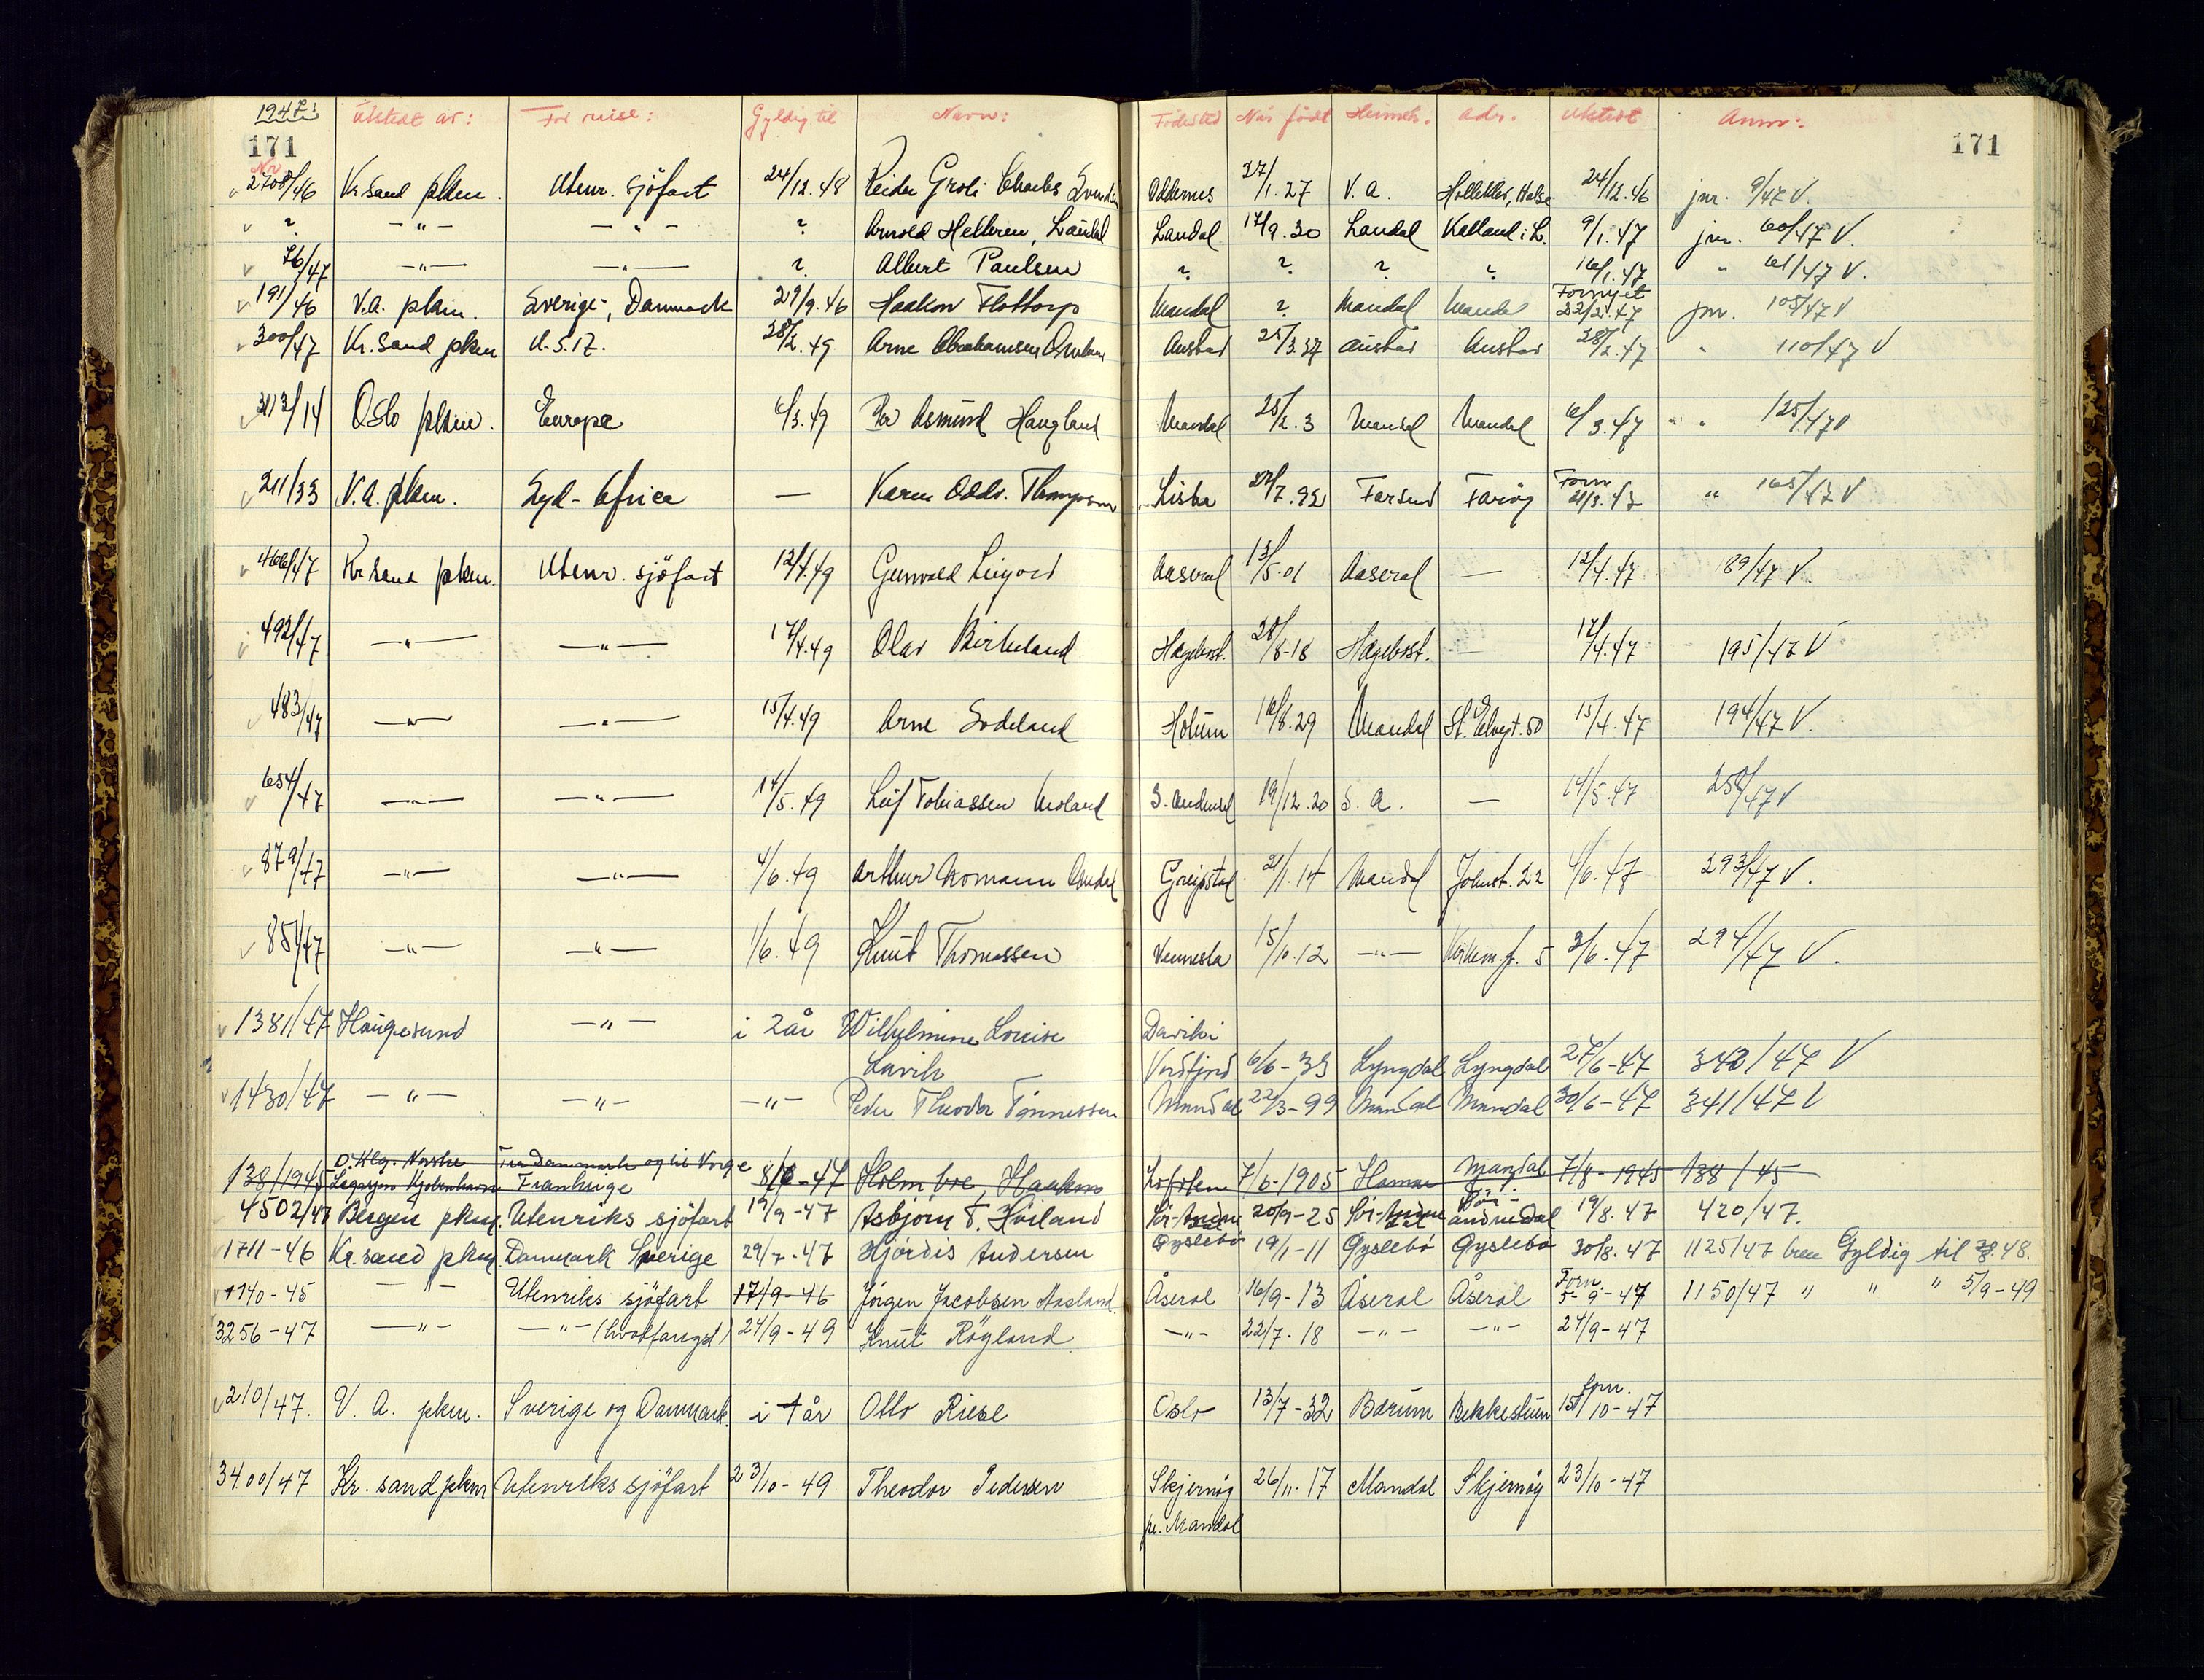 1947:
171 171
Nr Utstedt av: For reise: Gyldig til Navn: Fødested Når født Heimeh. adr. Utstedt Anm:
2708/46 Kr.sand pkm. Utenr. sjöfart 24/12.48 Reidar Charles Svendsen Oddernes 27/1.27 V.a. Halse 24/12.46 jnr. 9/47 V.
? -"- -"- ? Arnold Helleren, Laudal Laudal 17/9.30 Laudal i L. 9/1.47 jnr. 60/47 V.
76/47 -"- -"- ? Albert Paulsen ? ? ? ? 16/1.47 " 61/47 V.
191/46 V.a. pkm. Sverige, Danmark 29/9.46 Haakon Flottorp Mandal ? Mandal Mandal Fornyet 22/2.47 jnr. 105/47 V
300/47 Kr.sand pkm 28/2.49 Arne Abrahamsen Austad 25/3.27 Austad Austad 28/2.47 " 110/47 V
Oslo pkm. Europa 6/3.49 Per Asmund Haugland Mandal 25/2.3 Mandal Mandal 6/3.47 " " 125/47
211/33 V.a. pkm. Syd-Africa — Karen Thompson Lista 22/7.92 Farsund Farsund Forn 21/3.47 " 165/47 V
466/47 Kr.sand pkm. Utenr. sjöfart 12/4.49 Gunvald Ljigord Aaseral 13/5.01 Aaseral — 12/4.47 189/47 V.
492/47 -"- -"- 17/4.49 Olav Birkeland Hægebost. 28/8-18 Hægebost. — 17/4.47 195/47 V
483/47 -"- -"- 15/4.49 Arne Sodeland Holum 16/8.29 Mandal St. Elvegt. 50 15/4.47 194/47 V.
654/47 -"- -"- 14/5.49 Leif Tobiassen Moland S. Audnedal 19/12.20 S.A. — 14/5.47 250/47 V
879/47 -"- -"- 4/6.49 Arthur Normann Greipstad 21/1.14 Mandal Johnst. 22 4/6.47 293/47 V.
851/47 -"- -"- 1/6.49 Knut Thomassen Vennesla 15/10.12 -"- 5 2/6.47 294/47 V.
1381/47 Haugesund -"- i 2 år Wilhelmine Louise Davik i
Lavik Nordfjord 6/6-33 Lyngdal Lyngdal 27/6-47 342/47 V
1430/47 -"- -"- -"- Peder Theodor Tönnessen Mandal 22/3-99 Mandal Mandal 30/6-47 341/47 V
138/1945 D. Klg. Norske Legasjon Kjøbenhavn Fra Danmark og til Norge Frankrige 8/6-47 Holmboe, Haakon Lofoten 7/6-1905 Hamar Mandal 7/8-1945 138/45
4502/47 Bergen pkm. Utenriks sjöfart 19/9-47 Asbjörn T. Höiland Sör-Audnedal 20/9-25 Sör-Audnedal Sör-Audnedal 19/8.47 420/47.
1711-46 Kr.sand pkm. Danmark Sverige 29/7-47 Hjördis Andersen Øyslebö 19/1-11 Øyslebö Øyslebö 30/8.47 1125/47 Gyldig til 48.
1740-45 -"- Utenriks sjöfart 17/9-46 Jörgen Jacobsen Aasland Åseral 16/9-13 Åseral Åseral Forn 5-9-47 1150/47 " " " 5/9-49
3256-47 -"- -"- (hvalfangst) 24/9-49 Knut Røyland -"- 22/7-18 -"- -"- 24/9-47
210/47. V.A. pkm. Sverige og Danmark. i 1 år Otto Riese Oslo 13/7-32 Bærum Bekkestuen forn. 15/10-47
3400/47 Kr.sand pkm Utenriks sjöfart 23/10-49 Theodor Pedersen Skjernöy 26/11-17 Mandal Skjernöy 23/10-47
pr. Mandal